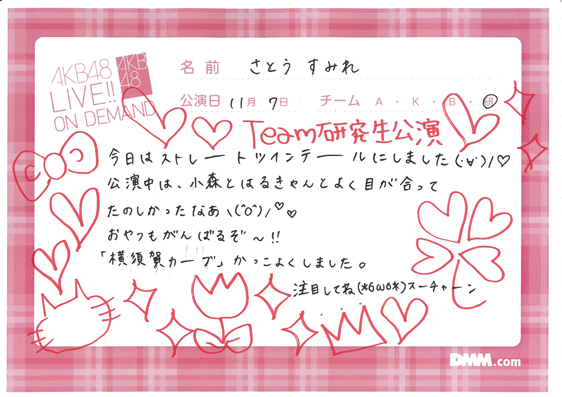 AKB48
LIVE!!
ON DEMAND
AKB
48
名前 さとう すみれ
公演日 11月 7日 チーム A・K・B・研
Team研究生公演
今日はストレートツインテールにしました(·∀·)/♡
公演中は、小森とはるきゃんとよく目が合って
たのしかったなあヽ(^o^)/♡♡
おやつもがんばるぞ〜!!
「横須賀カーブ」かっこよくしました。
注目してね(*6ω6*)スーチャーン
DMM.com